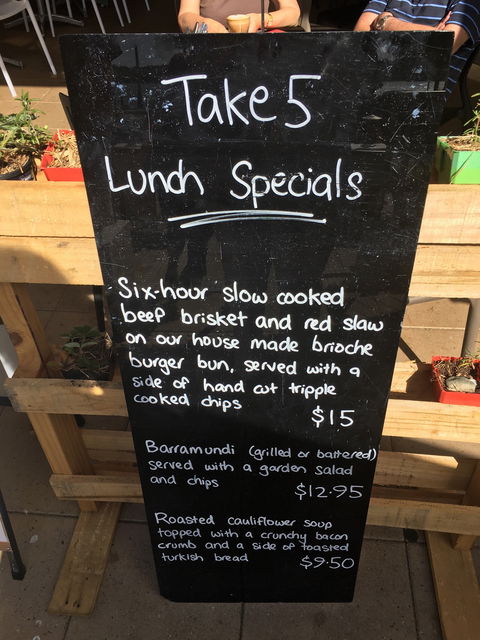 Take 5
Lunch Specials
Six-hour slow cooked
beef brisket and red slaw
on our house made brioche
burger bun, served with a
side of hand cut tripple
cooked chips
$15
Barramundi (grilled or battered)
served with a garden salad
and chips
$12.95
Roasted cauliflower soup
topped with a crunchy bacon
crumb and a side of toasted
turkish bread
$9.50